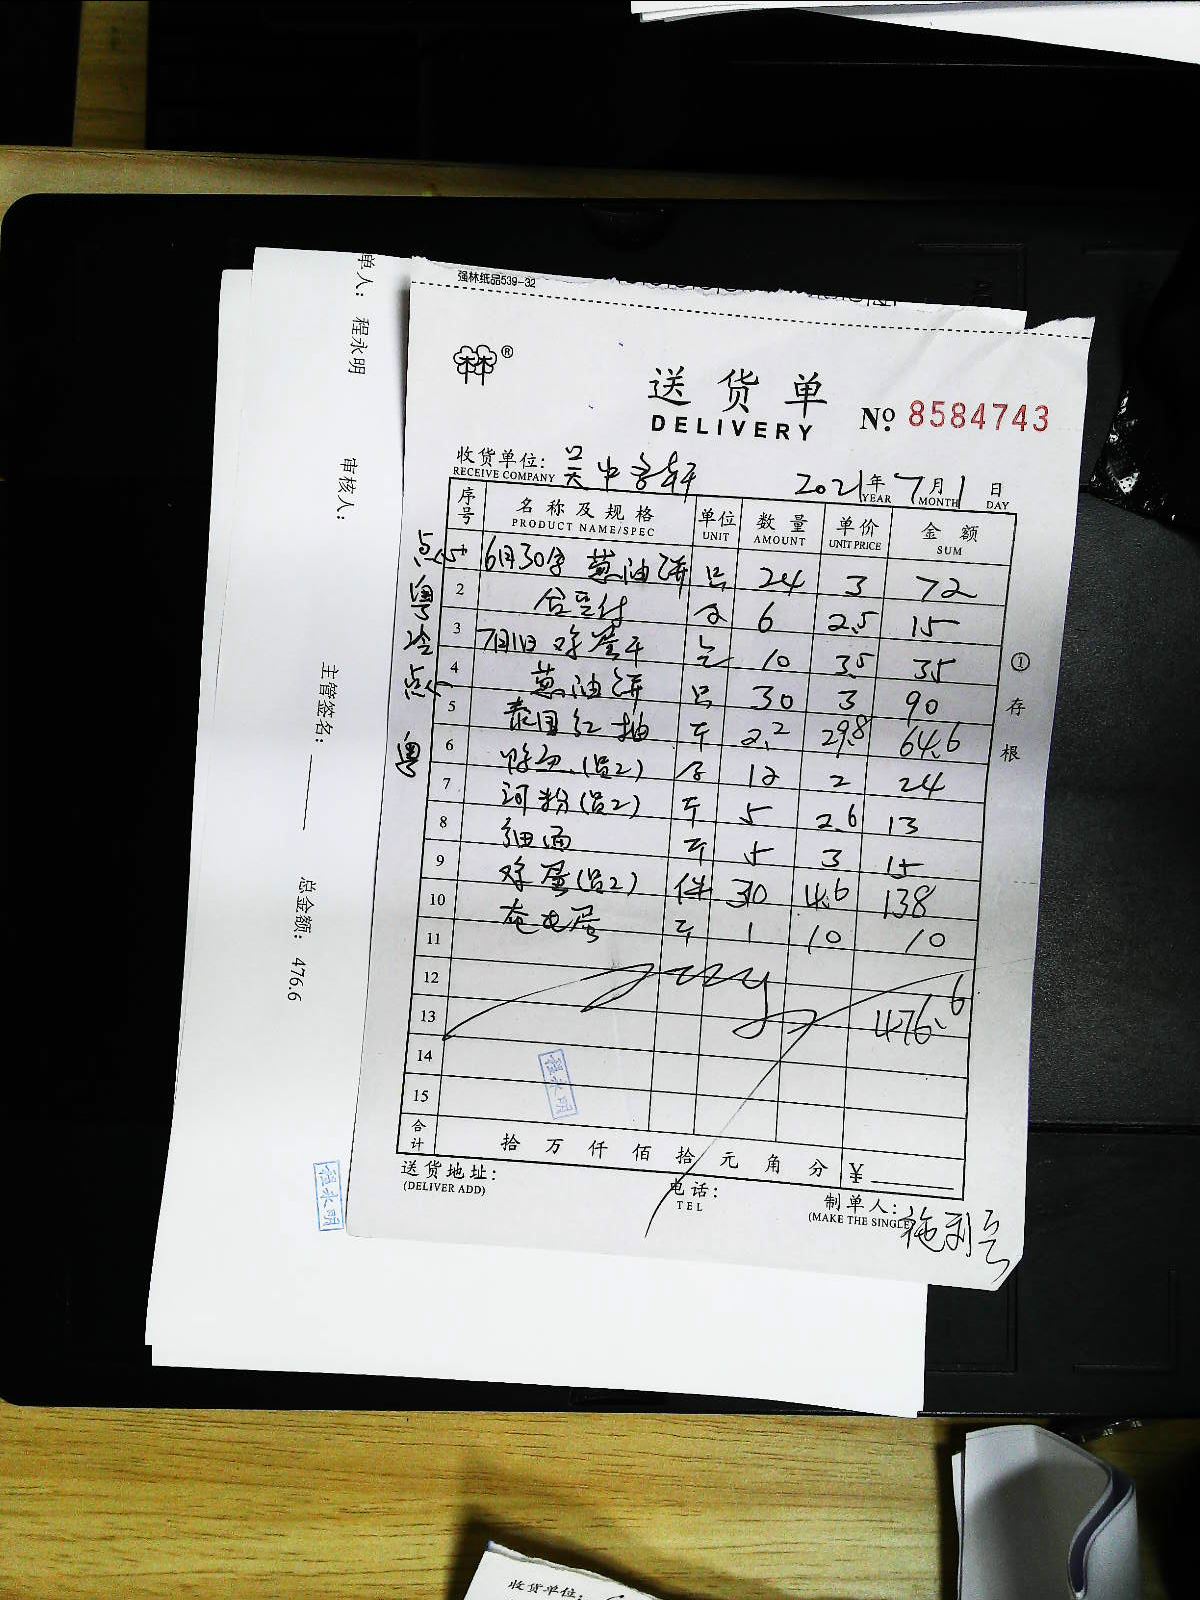 强林纸品539-32
®
送货单
DELIVERY
No 8584743
收货单位: 吴中
RECEIVE COMPANY
2021年7月1日
YEAR MONTH DAY
序号 名称及规格 单位 数量 单价 金额
PRODUCT NAME/SPEC UNIT AMOUNT UNIT PRICE SUM
点心 1 6月30号 葱油饼 只 24 3 72
粤 2 6 2.5 15
冷 3 7月1日 10 3.5 35
点心 4 葱油饼 只 30 3 90
5 泰国红柚 斤 2.2 29.8 64.6
粤 6 (吕2) 12 2 24
7 河粉(吕2) 斤 5 2.6 13
8 细面 斤 5 3 15
9 鸡蛋(吕2) 件 30 4.6 138
10 斤 1 10 10
11
12
13 476.6
14
15
合计 拾万仟佰拾元角分 ¥
送货地址:
(DELIVER ADD)
电话:
TEL
制单人:
(MAKE THE SINGLE
①存根
程永明
单人: 程永明
审核人:
主管签名:
总金额: 476.6
程永明
收货单位: